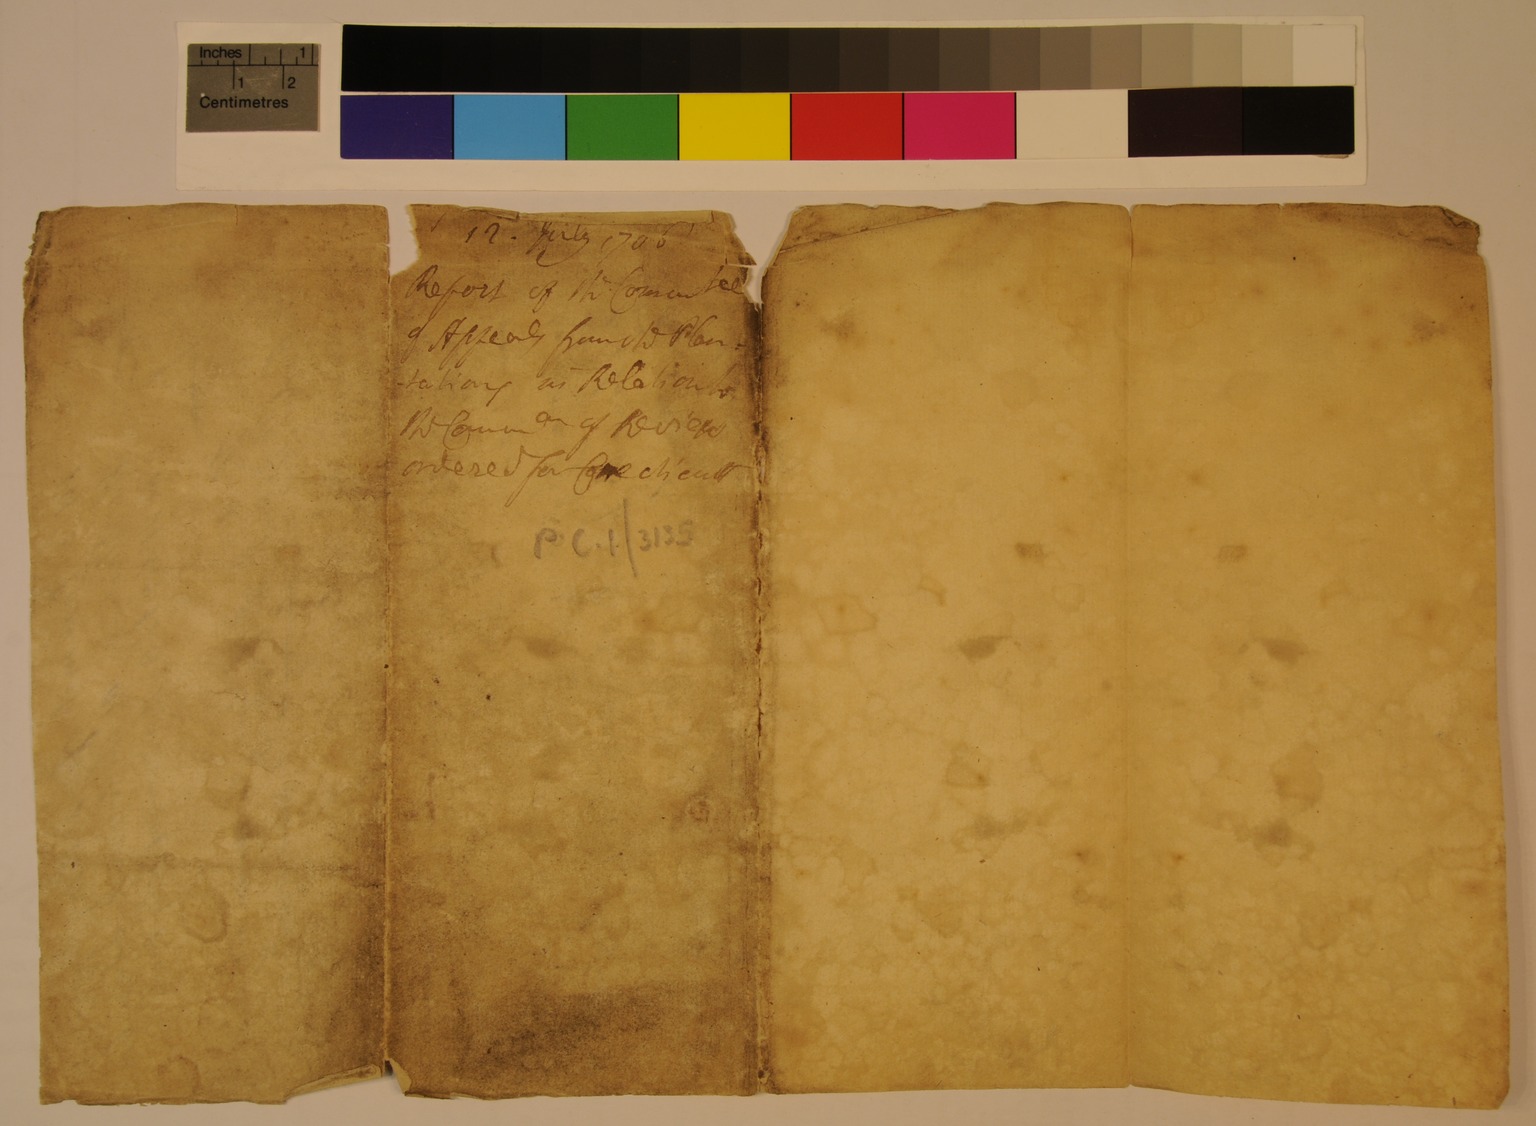 Inches 1
1 2
Centimetres
12. July 1706
Report of the Committee
of Appeals from the Plan-
tations in Relation to
the Commion of Review
ordered for Conecticutt
P C.1/3135